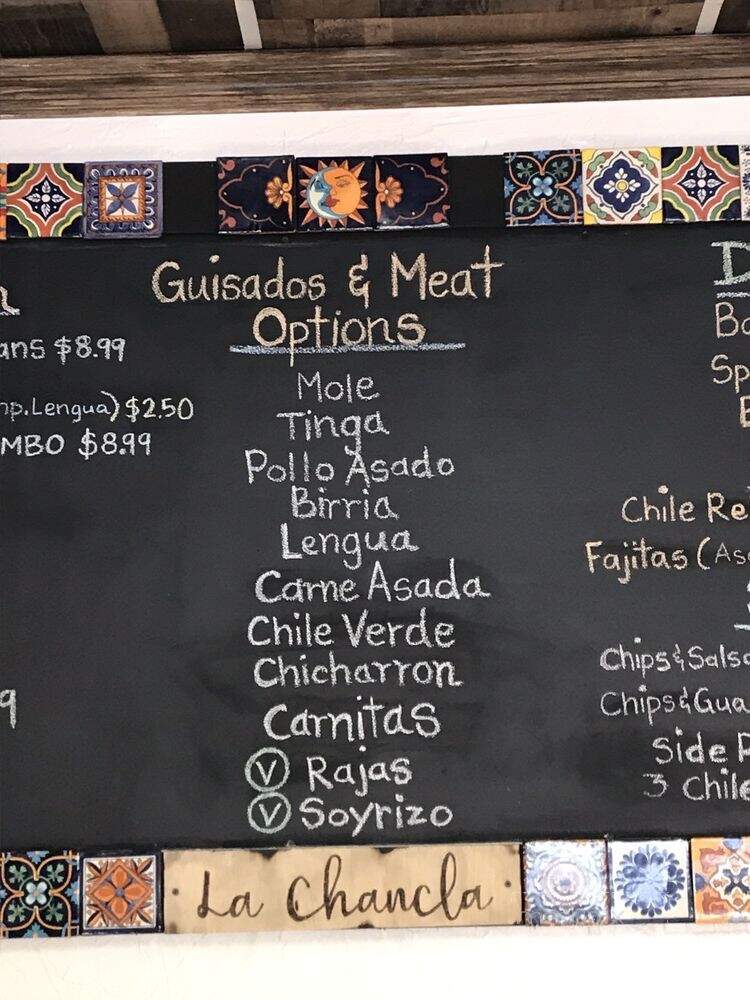 Guisados & Meat
Options
Mole
Tinga
Pollo Asado
Birria
Lengua
Carne Asada
Chile Verde
Chicharron
Carnitas
V Rajas
V Soyrizo
$8.99
Lengua) $2.50
$8.99
9
D
Chile
Fajitas (
Chips&Salsa
Chips&
Side
3 Chile
La Chancla